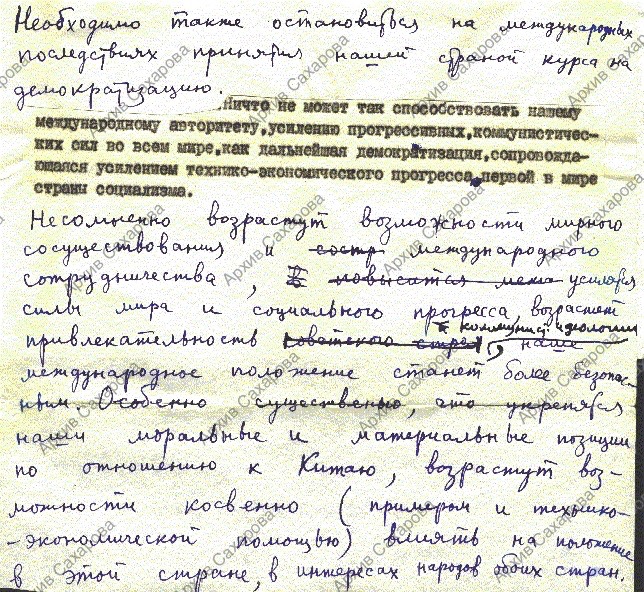 Необходимо также остановиться на международных
последствиях принятия нашей страной курса на
демократизацию.
Ничто не может так способствовать нашему
международному авторитету, усилению прогрессивных, коммунистичес-
ких сил во всем мире, как дальнейшая демократизация, сопровожда-
ющаяся усилением технико-экономического прогресса первой в мире
страны социализма.
Несомненно возрастут возможности мирного
сосуществования и состр международного
сотрудничества, повысится усилятся
силы мира и социального прогресса, возрастет
коммунист. идеологии
привлекательность советского строя, наше
международное положение станет более безопас-
ным. Особенно существенно, что укрепятся
наши моральные и материальные позиции
по отношению к Китаю, возрастут воз-
можности косвенно (примером и технико-
-экономической помощью) влиять на положение
в этой стране, в интересах народов обоих стран.
Архив Сахарова